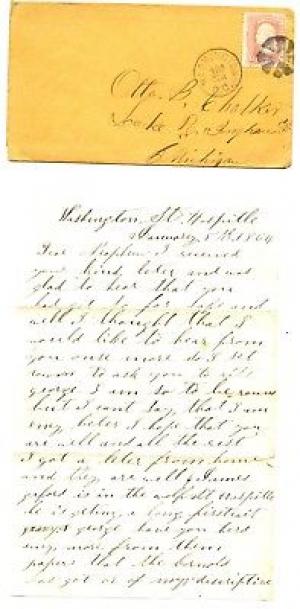 Otto B. Chalker
Lake P.O. Bingham
Michigan
Washington St. Hospitle
January 5th 1864
Dear Nephew I received
your kind leter and was
glad to hear that you
had got so far safe and
well I thought that I
would like to hear from
you once more so I set
down to ask you to
george I am so to be round
but I cant say that I am
eny beter I hope that you
are well and all the rest
I got a leter from home
and they are well James
is in the Hospitle
he is geting a long firstrait
george have you herd
eny more from them
papers that the
has got as of my descriptive